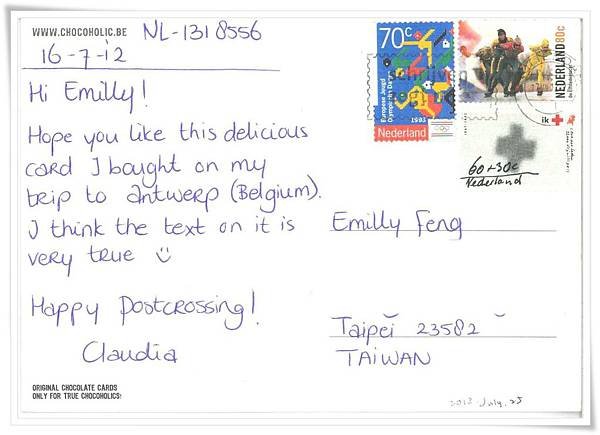 WWW.CHOCOHOLIC.BE NL-1318556
16-7-12
Hi Emilly!
Hope you like this delicious
card I bought on my
trip to antwerp (Belgium).
I think the text on it is
very true
Happy Postcrossing!
Claudia
ORIGINAL CHOCOLATE CARDS
ONLY FOR TRUE CHOCOHOLICS!
70c
Europese Jeugd
Olympische Dagen
1993
Nederland
NEDERLAND 80c
ik
60+30c
Nederland
Emilly Feng
Taipei 23582
TAIWAN
2012. July. 25